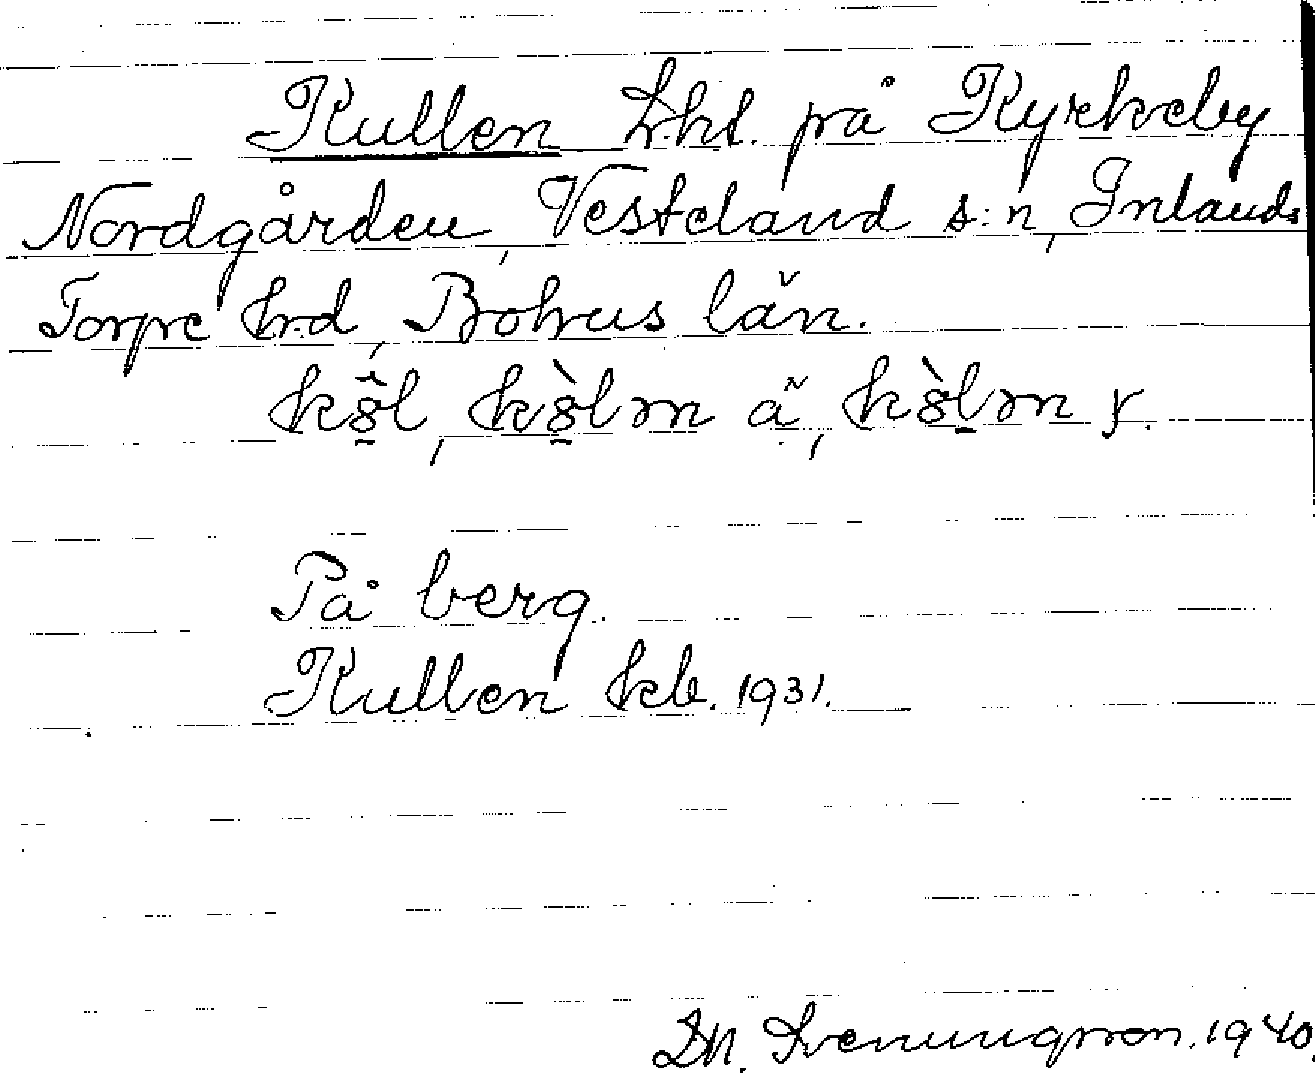 Kullen Lht. på Kyrkeby
Nordgården, Vesteland s:n, Inlands
Torpe hrd, Bohus län.
På berg.
Kullen kb. 1931.
Svenungsson. 1940.